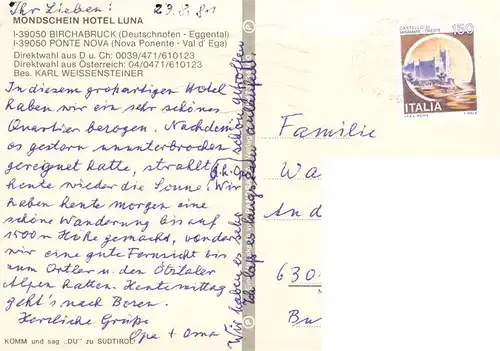 Ihr Lieben! 29.8.81
MONDSCHEIN HOTEL LUNA
I-39050 BIRCHABRUCK (Deutschnofen - Eggental)
I-39050 PONTE NOVA (Nova Ponente - Val d' Ega)
Direktwahl aus D u. Ch: 0039/471/610123
Direktwahl aus Österreich: 04/0471/610123
Bes. KARL WEISSENSTEINER
In diesem großartigen Hotel
haben wir ein sehr schönes
Quartier bezogen. Nachdem
es gestern ununterbrochen
geregnet hatte, strahlt
heute wieder die Sonne. Wir
haben heute morgen eine
schöne Wanderung bis auf
1500 m Höhe gemacht, von der
wir eine gute Fernsicht bis
zum Ortler u. den Ötztaler
Alpen hatten. Heute mittag
geht's nach Bozen.
Herzliche Grüße
Opa + Oma
KOMM und sag "DU" zu SÜDTIROL!
Wir haben es sehr schön getroffen
Ich laß es langsam angehen
150
CASTELLO DI
MIRAMARE - TRIESTE
ITALIA
Familie
Wa
An d
630
Bu